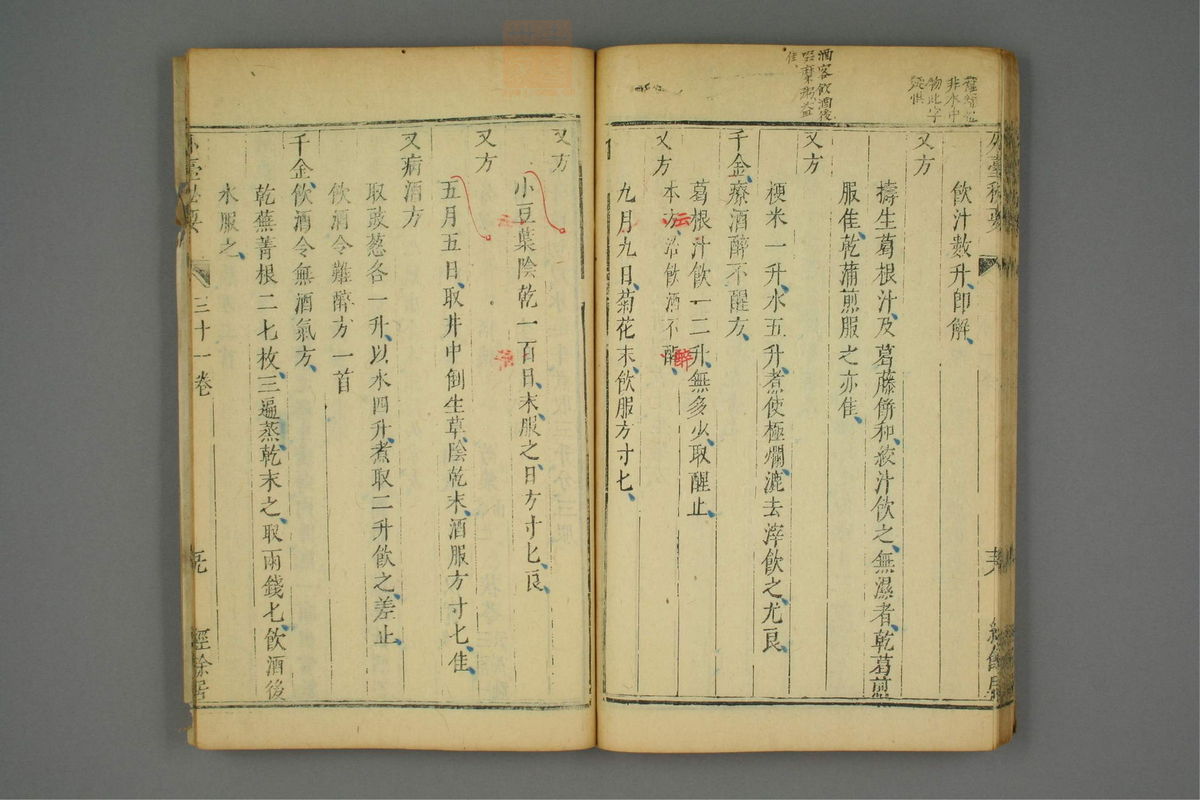 酒客飲酒後
飲汁數升、即解、
又方
擣生葛根汁、及葛藤餅、和絞汁飲之、無濕者、乾葛煎
服佳、乾蒲煎服之亦佳、
又方
粳米一升、水五升、煮使極爛、漉去滓飲之尤良、
千金、療酒醉不醒方、
葛根汁飲一二升、無多少、取醒止、
本方、云治飲酒不醉、
又方
九月九日、菊花末、飲服方寸匕、
又方
小豆葉陰乾一百日、末服之、日方寸匕、良、
又方
五月五日、取井中倒生草、陰乾末、酒服方寸匕、佳、
又病酒方
取豉葱各一升、以水四升、煮取二升飲之、差止、
飲酒令難醉方一首
千金、飲酒令無酒氣方、
乾蕪菁根二七枚、三遍蒸、乾末之、取兩錢匕、飲酒後
水服之、
外臺秘要
三十一卷
經餘居